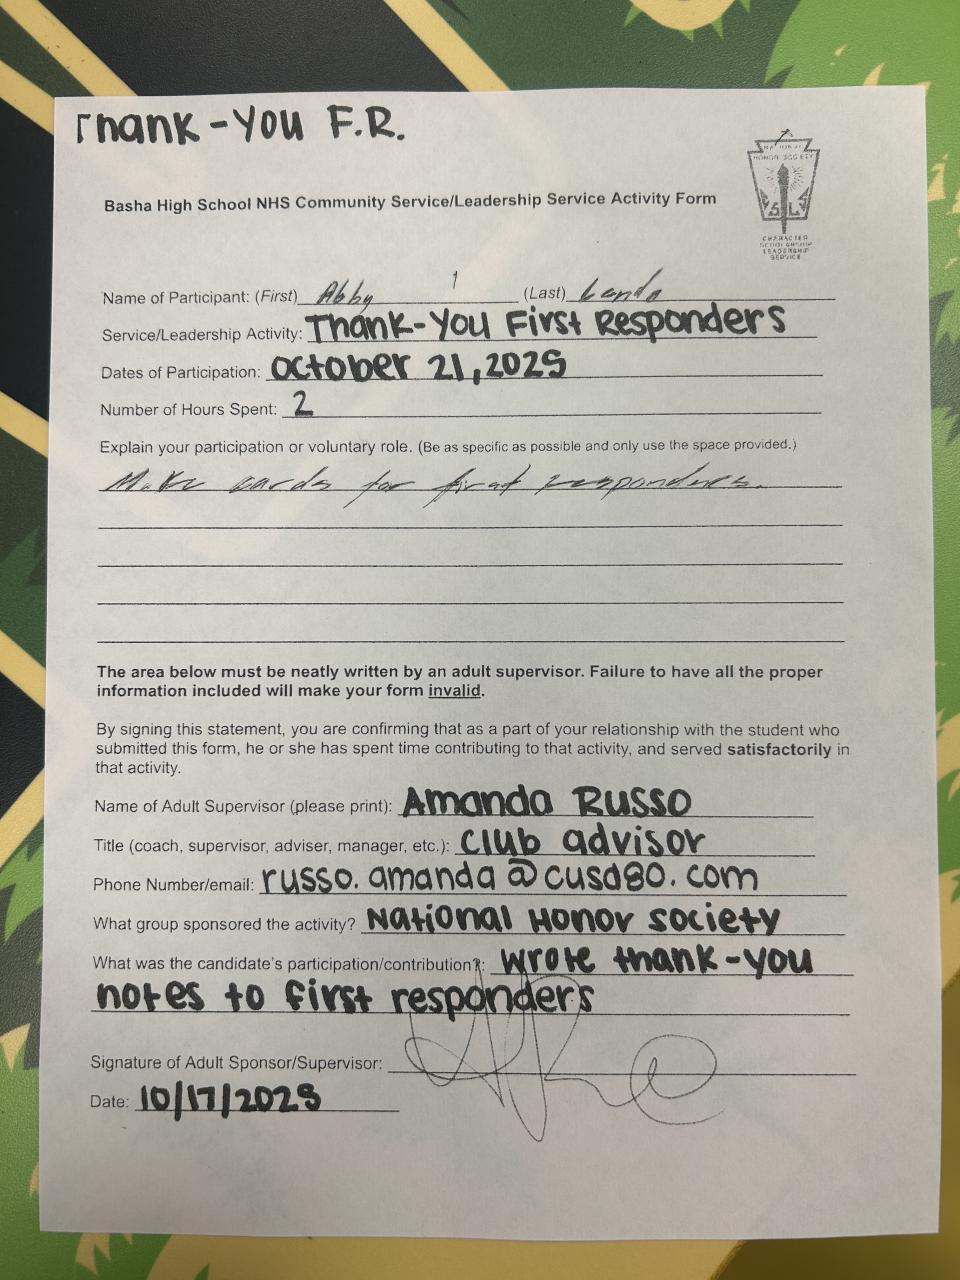 Thank-You F.R.
NATIONAL
HONOR SOCIETY
CHARACTER
SCHOLARSHIP
LEADERSHIP
SERVICE
Basha High School NHS Community Service/Leadership Service Activity Form
Name of Participant: (First) Abby (Last) Landa
Service/Leadership Activity: Thank-You First Responders
Dates of Participation: October 21, 2025
Number of Hours Spent: 2
Explain your participation or voluntary role. (Be as specific as possible and only use the space provided.)
Make cards for first responders.
The area below must be neatly written by an adult supervisor. Failure to have all the proper
information included will make your form invalid.
By signing this statement, you are confirming that as a part of your relationship with the student who
submitted this form, he or she has spent time contributing to that activity, and served satisfactorily in
that activity.
Name of Adult Supervisor (please print): Amanda Russo
Title (coach, supervisor, adviser, manager, etc.): club advisor
Phone Number/email: russo.amanda@cusd80.com
What group sponsored the activity? National Honor Society
What was the candidate's participation/contribution?: wrote thank-you
notes to first responders
Signature of Adult Sponsor/Supervisor:
Date: 10/17/2025